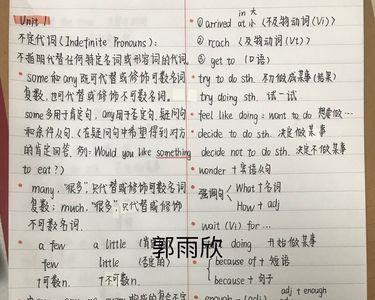 Unit 1
不定代词(Indefinite Pronouns):
不指明代替任何特定名词或形容词的代词。
some和any既可代替或修饰可数名词
复数,也可代替或修饰不可数名词。
some多用于肯定句, any用于否定句、疑问句
和条件从句。(在疑问句中希望得到对方
的肯定回答, 例: Would you like something
to eat?)
many. "很多", 只代替或修饰可数名词
复数; much. "很多", 只代替或修饰
不可数名词.
a few a little
few little (否定的)
可数n. 不可数n.
① arrived at 小 in 大 (不及物动词(Vi))
② reach (及物动词(Vt))
③ get to (口语)
try to do sth. 尽力做某事(结果)
try doing sth. 试一试
feel like doing = want to do 想要做…
decide to do sth. 决定做某事
decide not to do sth. 决定不做某事
wonder + 宾语从句
强调句 What + 名词
How + adj
wait (Vi) for …
doing 开始做某事
because of + 短语
because + 句子
adj + enough
郭雨欣